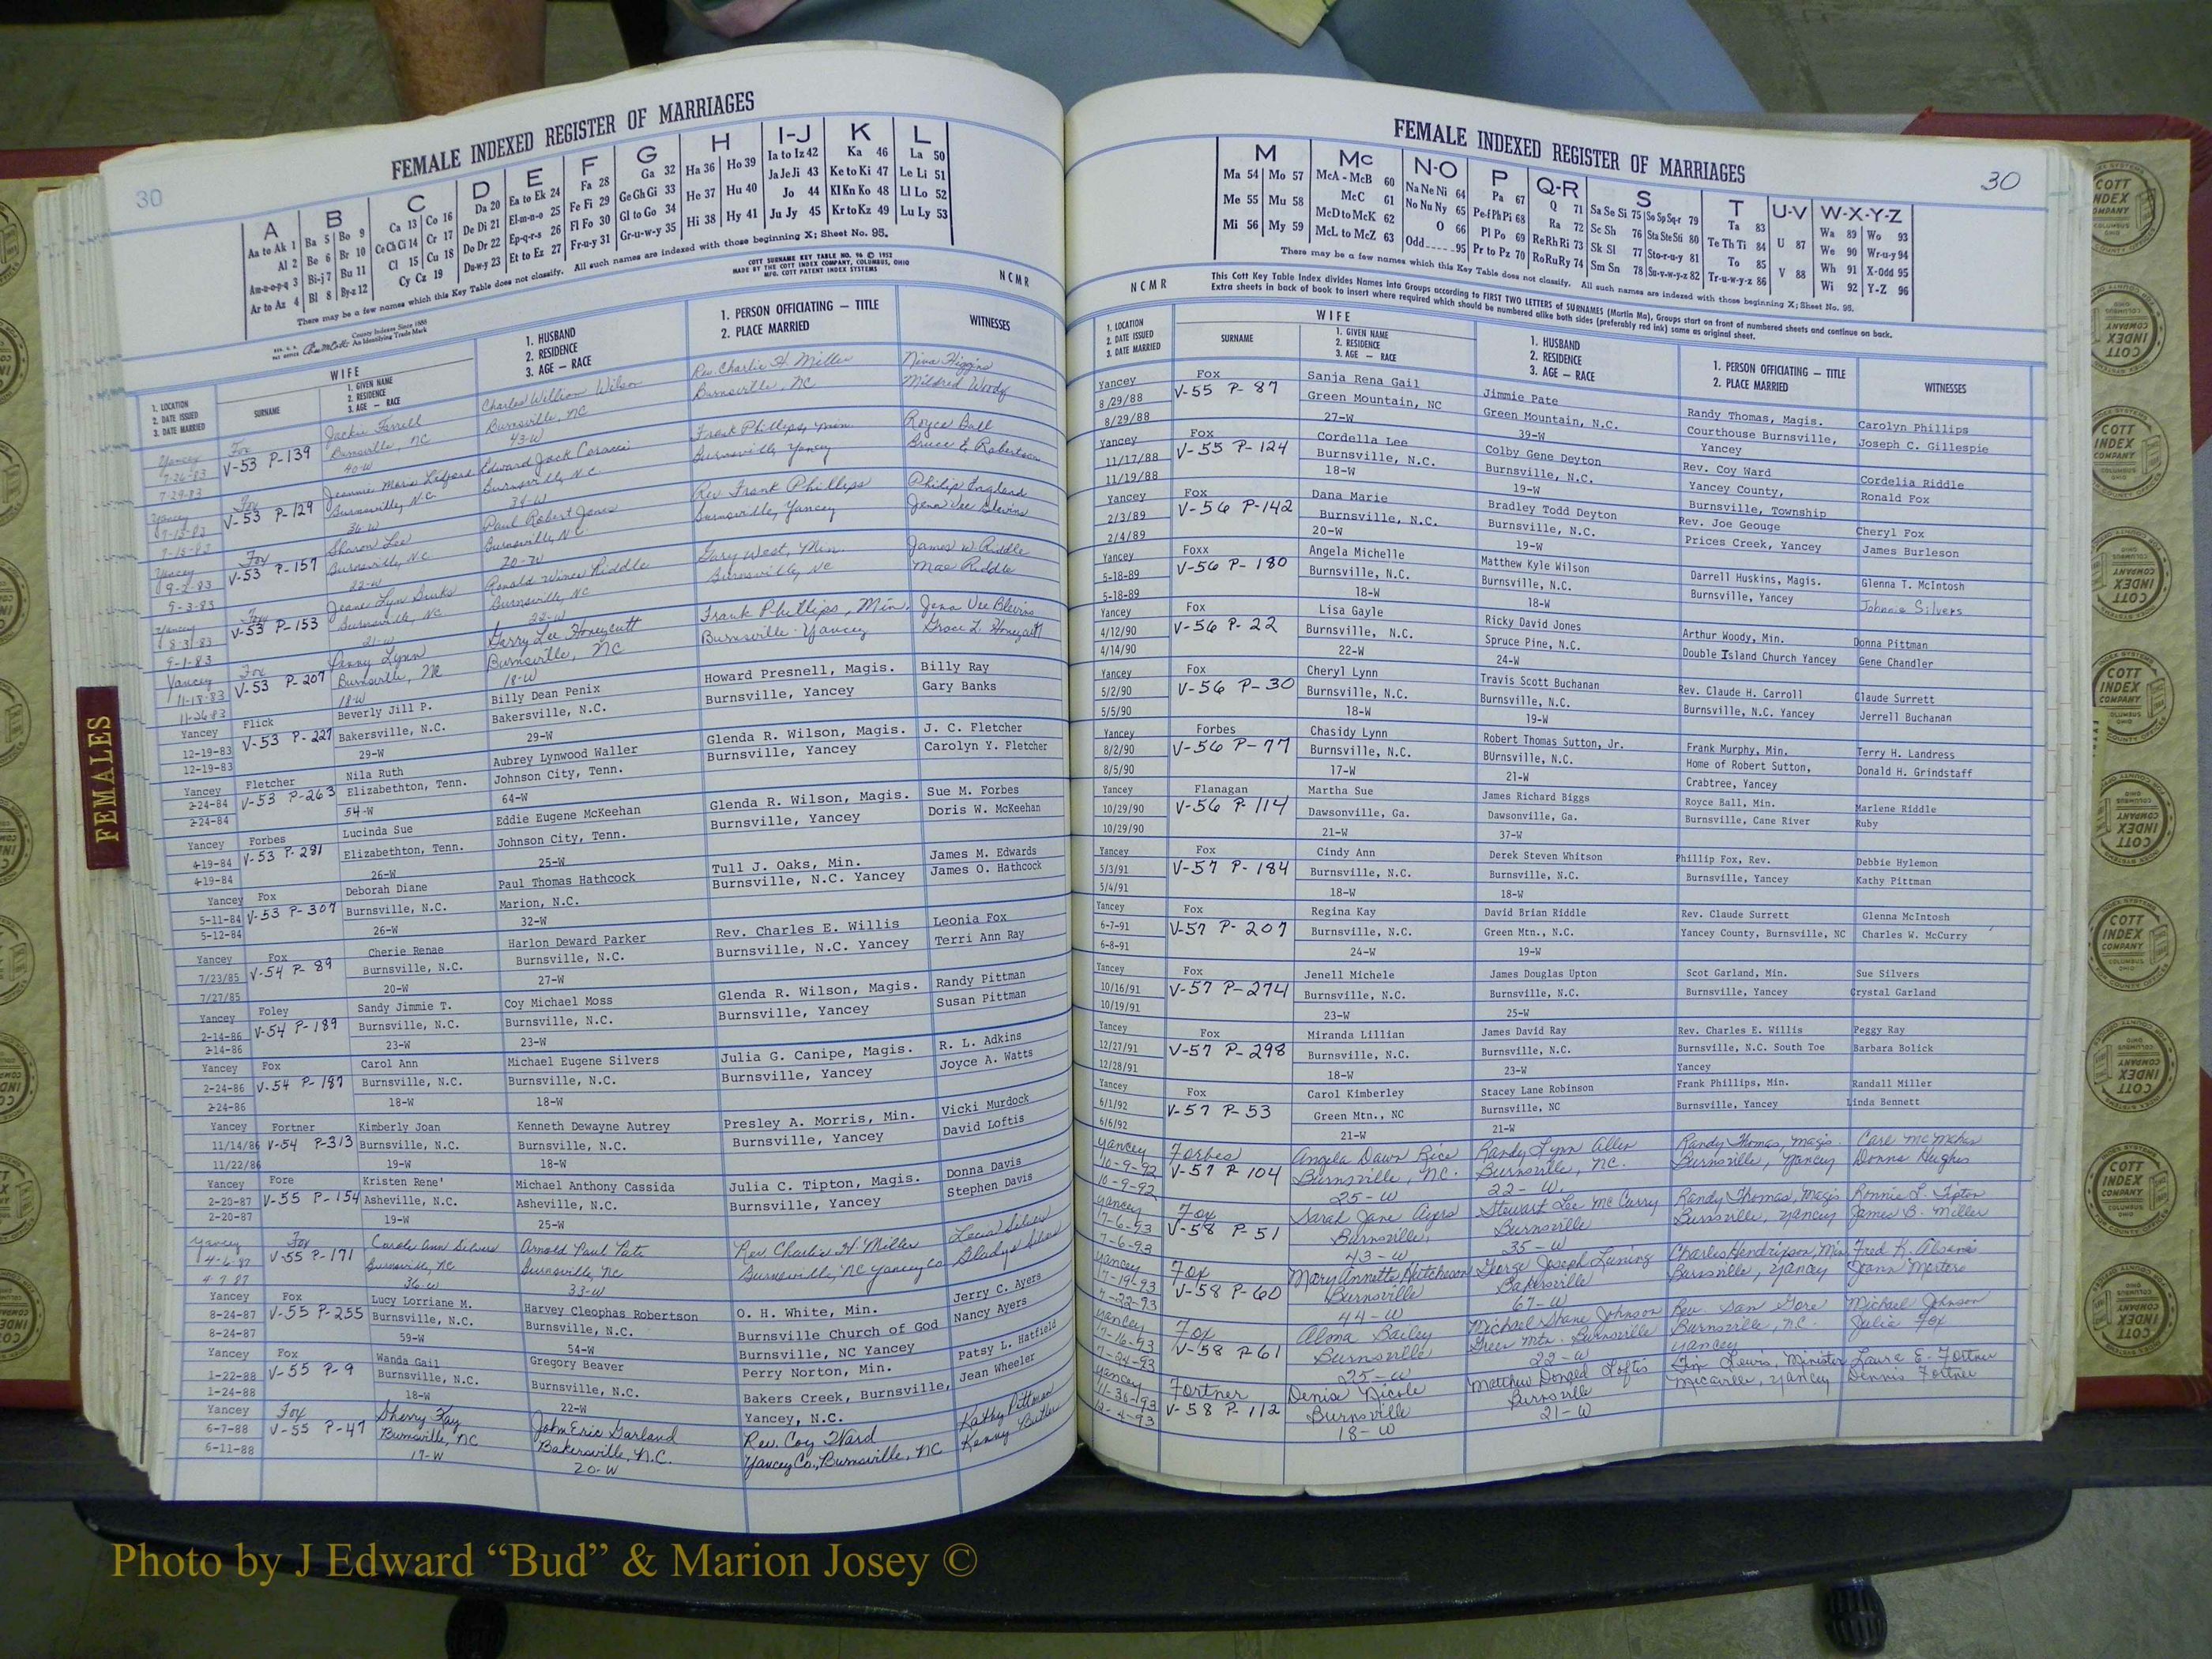 30
FEMALE INDEXED REGISTER OF MARRIAGES
A B C D E F G H I-J K L
Aa to Ak 1 Ba 5 Bo 9 Ca 13 Co 16 Da 20 Ea to Ek 24 Fa 28 Ga 32 Ha 36 Ho 39 Ia to Iz 42 Ka 46 La 50
Al 2 Be 6 Br 10 Ce Ch Ci 14 Cr 17 De Di 21 El-m-n-o 25 Fe Fi 29 Ge Gh Gi 33 He 37 Hu 40 Ja Je Ji 43 Ke to Ki 47 Le Li 51
Am-n-o-p-q 3 Bi-j 7 Bu 11 Cl 15 Cu 18 Do Dr 22 Ep-q-r-s 26 Fl Fo 30 Gl to Go 34 Hi 38 Hy 41 Jo 44 Kl Kn Ko 48 Ll Lo 52
Ar to Az 4 Bl 8 By-z 12 Cy Cz 19 Du-w-y 23 Et to Ez 27 Fr-u-y 31 Gr-u-w-y 35 Ju Jy 45 Kr to Kz 49 Lu Ly 53
There may be a few names which this Key Table does not classify. All such names are indexed with those beginning X; Sheet No. 95.
COTT SURNAME KEY TABLE NO. 96 © 1952
MADE BY THE COTT INDEX COMPANY, COLUMBUS, OHIO
MFG. COTT PATENT INDEX SYSTEMS
NCMR
County Indexes Since 1888
An Identifying Trade Mark
WIFE
1. LOCATION 2. DATE ISSUED 3. DATE MARRIED
SURNAME
1. GIVEN NAME 2. RESIDENCE 3. AGE — RACE
1. HUSBAND 2. RESIDENCE 3. AGE — RACE
1. PERSON OFFICIATING — TITLE 2. PLACE MARRIED
WITNESSES
Yancey Fox Jackie Ferrell Charles William Wilson Rev. Charlie H. Miller Nina Higgins
7-26-83 V-53 P-139 Burnsville, NC Burnsville, NC Burnsville, NC Mildred Woody
7-29-83 40-W 43-W
Yancey Fox Jeannie Marie Ledford Edward Jack Coracci Frank Phillips, Min Royce Ball
7-15-83 V-53 P-129 Burnsville, N.C. Burnsville, N.C. Burnsville, Yancey Bruce E. Robertson
7-15-83 36-W 34-W
Yancey Fox Sharon Lee Paul Robert Jones Rev. Frank Phillips Philip England
9-2-83 V-53 P-157 Burnsville, NC Burnsville, NC Burnsville, Yancey Jena Vee Blevins
9-3-83 22-W 20-W
Yancey Fox Jeane Lyn Burks Ronald Wines Riddle Gary West, Min. James W. Riddle
8-31-83 V-53 P-153 Burnsville, NC Burnsville, NC Burnsville, NC Mae Riddle
9-1-83 21-W 22-W
Yancey Fox Penny Lynn Gerry Lee Honeycutt Frank Phillips, Min. Jena Vee Blevins
11-18-83 V-53 P-207 Burnsville, NC Burnsville, NC Burnsville-Yancey Grace L. Honeycutt
11-26-83 18-W 18-W
Yancey Flick Beverly Jill P. Billy Dean Penix Howard Presnell, Magis. Billy Ray
12-19-83 V-53 P-227 Bakersville, N.C. Bakersville, N.C. Burnsville, Yancey Gary Banks
12-19-83 29-W 29-W
Yancey Fletcher Nila Ruth Aubrey Lynwood Waller Glenda R. Wilson, Magis. J. C. Fletcher
2-24-84 V-53 P-263 Elizabethton, Tenn. Johnson City, Tenn. Burnsville, Yancey Carolyn Y. Fletcher
2-24-84 54-W 64-W
Yancey Forbes Lucinda Sue Eddie Eugene McKeehan Glenda R. Wilson, Magis. Sue M. Forbes
4-19-84 V-53 P-291 Elizabethton, Tenn. Johnson City, Tenn. Burnsville, Yancey Doris W. McKeehan
4-19-84 26-W 25-W
Yancey Fox Deborah Diane Paul Thomas Hathcock Tull J. Oaks, Min. James M. Edwards
5-11-84 V-53 P-307 Burnsville, N.C. Marion, N.C. Burnsville, N.C. Yancey James O. Hathcock
5-12-84 26-W 32-W
Yancey Fox Cherie Renae Harlon Deward Parker Rev. Charles E. Willis Leonia Fox
7/23/85 V-54 P-89 Burnsville, N.C. Burnsville, N.C. Burnsville, N.C. Yancey Terri Ann Ray
7/27/85 20-W 27-W
Yancey Foley Sandy Jimmie T. Coy Michael Moss Glenda R. Wilson, Magis. Randy Pittman
2-14-86 V-54 P-189 Burnsville, N.C. Burnsville, N.C. Burnsville, Yancey Susan Pittman
2-14-86 23-W 23-W
Yancey Fox Carol Ann Michael Eugene Silvers Julia G. Canipe, Magis. R. L. Adkins
2-24-86 V-54 P-187 Burnsville, N.C. Burnsville, N.C. Burnsville, Yancey Joyce A. Watts
2-24-86 18-W 18-W
Yancey Fortner Kimberly Joan Kenneth Dewayne Autrey Presley A. Morris, Min. Vicki Murdock
11/14/86 V-54 P-313 Burnsville, N.C. Burnsville, N.C. Burnsville, Yancey David Loftis
11/22/86 19-W 18-W
Yancey Fore Kristen Rene' Michael Anthony Cassida Julia C. Tipton, Magis. Donna Davis
2-20-87 V-55 P-154 Asheville, N.C. Asheville, N.C. Burnsville, Yancey Stephen Davis
2-20-87 19-W 25-W
Yancey Fox Carole Ann Silvers Arnold Paul Pate Rev. Charlie H. Miller
4-6-87 V-55 P-171 Burnsville, NC Burnsville, NC Burnsville, NC Yancey Co Gladys
4-7-87 36-W 33-W
Yancey Fox Lucy Lorriane M. Harvey Cleophas Robertson O. H. White, Min. Jerry C. Ayers
8-24-87 V-55 P-255 Burnsville, N.C. Burnsville, N.C. Burnsville Church of God Nancy Ayers
8-24-87 59-W 54-W Burnsville, NC Yancey
Yancey Fox Wanda Gail Gregory Beaver Perry Norton, Min. Patsy L. Hatfield
1-22-88 V-55 P-9 Burnsville, N.C. Burnsville, N.C. Bakers Creek, Burnsville, Jean Wheeler
1-24-88 18-W 22-W Yancey, N.C.
Yancey Fox Sherry Fay John Eric Garland Rev. Coy Ward Kathy Pittman
6-7-88 V-55 P-47 Burnsville, NC Bakersville, N.C. Yancey Co., Burnsville, NC Kenny Butler
6-11-88 17-W 20-W
FEMALES
FEMALE INDEXED REGISTER OF MARRIAGES
30
M Mc N-O P Q-R S T U-V W-X-Y-Z
Ma 54 Mo 57 McA - McB 60 Na Ne Ni 64 Pa 67 Q 71 Sa Se Si 75 So Sp Sq-r 79 Ta 83 Wa 89 Wo 93
Me 55 Mu 58 McC 61 No Nu Ny 65 Pe-f Ph Pi 68 Ra 72 Sc Sh 76 Sta Ste Sti 80 Te Th Ti 84 U 87 We 90 Wr-u-y 94
Mi 56 My 59 McD to McK 62 O 66 Pl Po 69 Re Rh Ri 73 Sk Sl 77 Sto-r-u-y 81 To 85 Wh 91 X-Odd 95
McL to McZ 63 Odd 95 Pr to Pz 70 Ro Ru Ry 74 Sm Sn 78 Su-v-w-y-z 82 Tr-u-w-y-z 86 V 88 Wi 92 Y-Z 96
There may be a few names which this Key Table does not classify. All such names are indexed with those beginning X; Sheet No. 95.
NCMR
This Cott Key Table Index divides Names into Groups according to FIRST TWO LETTERS of SURNAMES (Martin Ma), Groups start on front of numbered sheets and continue on back.
Extra sheets in back of book to insert where required which should be numbered alike both sides (preferably red ink) same as original sheet.
WIFE
1. LOCATION 2. DATE ISSUED 3. DATE MARRIED
SURNAME
1. GIVEN NAME 2. RESIDENCE 3. AGE — RACE
1. HUSBAND 2. RESIDENCE 3. AGE — RACE
1. PERSON OFFICIATING — TITLE 2. PLACE MARRIED
WITNESSES
Yancey Fox Sanja Rena Gail Jimmie Pate Randy Thomas, Magis. Carolyn Phillips
8/29/88 V-55 P-87 Green Mountain, NC Green Mountain, N.C. Courthouse Burnsville, Joseph C. Gillespie
8/29/88 27-W 39-W Yancey
Yancey Fox Cordella Lee Colby Gene Deyton Rev. Coy Ward Cordelia Riddle
11/17/88 V-55 P-124 Burnsville, N.C. Burnsville, N.C. Yancey County, Ronald Fox
11/19/88 18-W 19-W Burnsville, Township
Yancey Fox Dana Marie Bradley Todd Deyton Rev. Joe Geouge Cheryl Fox
2/3/89 V-56 P-142 Burnsville, N.C. Burnsville, N.C. Prices Creek, Yancey James Burleson
2/4/89 20-W 19-W
Yancey Foxx Angela Michelle Matthew Kyle Wilson Darrell Huskins, Magis. Glenna T. McIntosh
5-18-89 V-56 P-180 Burnsville, N.C. Burnsville, N.C. Burnsville, Yancey Johnnie Silvers
5-18-89 18-W 18-W
Yancey Fox Lisa Gayle Ricky David Jones Arthur Woody, Min. Donna Pittman
4/12/90 V-56 P-22 Burnsville, N.C. Spruce Pine, N.C. Double Island Church Yancey Gene Chandler
4/14/90 22-W 24-W
Yancey Fox Cheryl Lynn Travis Scott Buchanan Rev. Claude H. Carroll Claude Surrett
5/2/90 V-56 P-30 Burnsville, N.C. Burnsville, N.C. Burnsville, N.C. Yancey Jerrell Buchanan
5/5/90 18-W 19-W
Yancey Forbes Chasidy Lynn Robert Thomas Sutton, Jr. Frank Murphy, Min. Terry H. Landress
8/2/90 V-56 P-77 Burnsville, N.C. BUrnsville, N.C. Home of Robert Sutton, Donald H. Grindstaff
8/5/90 17-W 21-W Crabtree, Yancey
Yancey Flanagan Martha Sue James Richard Biggs Royce Ball, Min. Marlene Riddle
10/29/90 V-56 P-114 Dawsonville, Ga. Dawsonville, Ga. Burnsville, Cane River Ruby
10/29/90 21-W 37-W
Yancey Fox Cindy Ann Derek Steven Whitson Phillip Fox, Rev. Debbie Hylemon
5/3/91 V-57 P-184 Burnsville, N.C. Burnsville, N.C. Burnsville, Yancey Kathy Pittman
5/4/91 18-W 18-W
Yancey Fox Regina Kay David Brian Riddle Rev. Claude Surrett Glenna McIntosh
6-7-91 V-57 P-207 Burnsville, N.C. Green Mtn., N.C. Yancey County, Burnsville, NC Charles W. McCurry
6-8-91 24-W 19-W
Yancey Fox Jenell Michele James Douglas Upton Scot Garland, Min. Sue Silvers
10/16/91 V-57 P-274 Burnsville, N.C. Burnsville, N.C. Burnsville, Yancey Crystal Garland
10/19/91 23-W 25-W
Yancey Fox Miranda Lillian James David Ray Rev. Charles E. Willis Peggy Ray
12/27/91 V-57 P-298 Burnsville, N.C. Burnsville, N.C. Burnsville, N.C. South Toe Barbara Bolick
12/28/91 18-W 23-W Yancey
Yancey Fox Carol Kimberley Stacey Lane Robinson Frank Phillips, Min. Randall Miller
6/1/92 V-57 P-53 Green Mtn., NC Burnsville, NC Burnsville, Yancey Linda Bennett
6/6/92 21-W 21-W
Yancey Forbes Angela Dawn Rice Randy Lynn Allen Randy Thomas, Magis. Carl McMahan
10-9-92 V-57 P-104 Burnsville, NC. Burnsville, NC. Burnsville, Yancey Donna Hughes
10-9-92 25-W 22-W.
Yancey Fox Sarah Jane Ayers Stewart Lee McCurry Randy Thomas, Magis Ronnie L. Tipton
7-6-93 V-58 P-51 Burnsville, Burnsville Burnsville, Yancey James B. Miller
7-6-93 43-W 35-W
Yancey Fox Mary Annette Hutcheson George Joseph Luning Charles Hendrixson, Min Fred K.
7-19-93 V-58 P-60 Burnsville Bakersville Burnsville, Yancey
7-22-93 44-W 67-W
Yancey Fox Alma Bailey Michael Shane Johnson Rev. Dan Gore Michael Johnson
7-16-93 V-58 P61 Burnsville Green Mtn. Burnsville Burnsville, N.C. Julie Fox
7-24-93 25-W 22-W Yancey
Yancey Fortner Denise Nicole Matthew Donald Loftis Tim Lewis, Minister Laura E. Fortner
V-58 P-112 Burnsville Burnsville Micaville, Yancey Dennis Fortner
12-4-93 18-W 21-W
COTT INDEX COMPANY COLUMBUS OHIO
Photo by J Edward “Bud” & Marion Josey ©